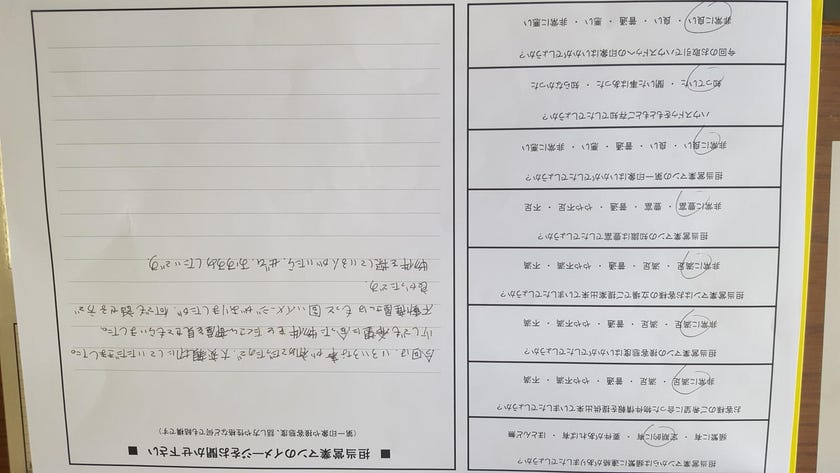 担当営業マンからは頻繁に連絡がありましたでしょうか?
頻繁に有 ・ 定期的に有 ・ 要件があれば有 ・ ほとんど無
お客様のご希望に合った物件情報を提供出来ていましたでしょうか?
非常に満足 ・ 満足 ・ 普通 ・ やや不満 ・ 不満
担当営業マンの接客態度はいかがでしたでしょうか?
非常に満足 ・ 満足 ・ 普通 ・ やや不満 ・ 不満
担当営業マンはお客様の立場でご提案出来ていましたでしょうか?
非常に満足 ・ 満足 ・ 普通 ・ やや不満 ・ 不満
担当営業マンの知識は豊富でしたでしょうか?
非常に豊富 ・ 豊富 ・ 普通 ・ やや不足 ・ 不足
担当営業マンの第一印象はいかがでしたでしょうか?
非常に良い ・ 良い ・ 普通 ・ 悪い ・ 非常に悪い
ハウスドゥをもともとご存知でしたでしょうか?
知っていた ・ 聞いた事はあった ・ 知らなかった
今回のお取引でハウスドゥへの印象はいかがでしょうか?
非常に良い ・ 良い ・ 普通 ・ 悪い ・ 非常に悪い
■ 担当営業マンのイメージをお聞かせ下さい ■
(第一印象や接客態度、話し方や性格など何でも結構です)
今回は、いろいろな事が初めてだったので、大変親切にしていただきました。
少しでも希望に合った物件をとたくさん部屋を見せてもらいました。
不動産屋さんはもっと固いイメージがありましたが、何でも話せる方で
良かったです。
物件を探している人がいたら、ぜひ、おすすめしたいです。